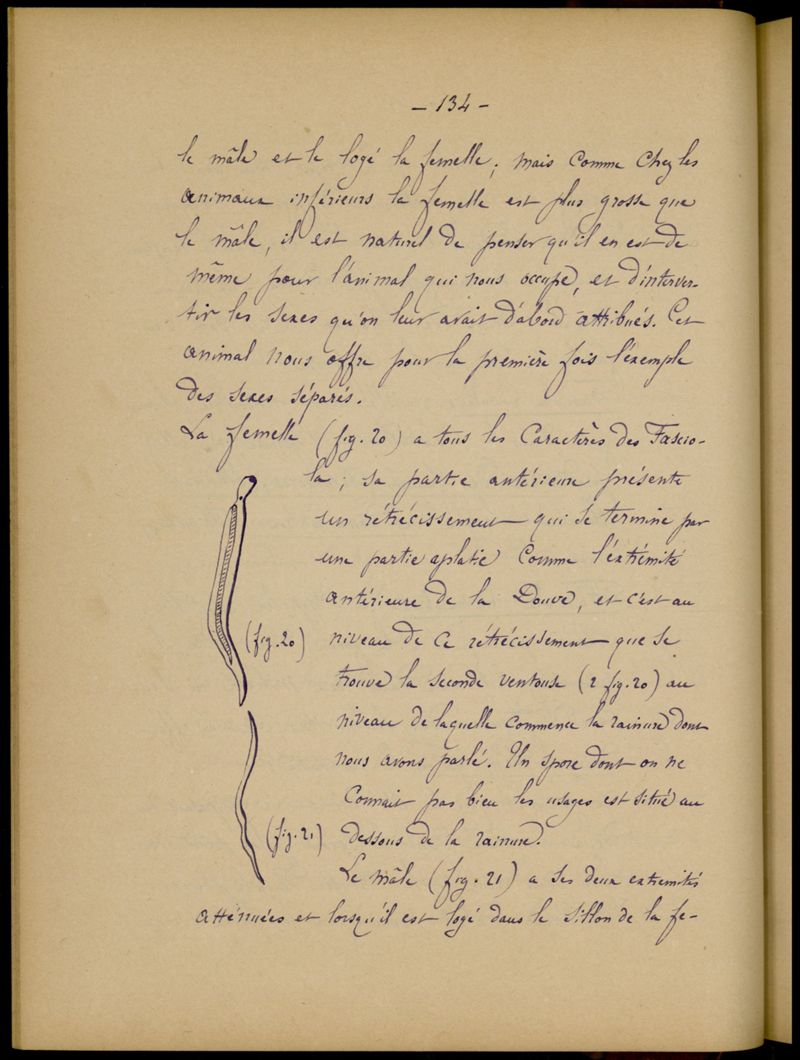 - 134 -
le mâle et le logé la femelle; mais comme chez les
animaux inférieurs la femelle est plus grosse que
le mâle, il est naturel de penser qu'il en est de
même pour l'animal qui nous occupe, et d'interver-
tir les sexes qu'on leur avait d'abord attribués. Cet
animal nous offre pour la première fois l'exemple
des sexes séparés.
La femelle (fig. 20) a tous les caractères des Fascio-
la; sa partie antérieure présente
un rétrécissement qui se termine par
une partie aplatie comme l'éxtrémité
antérieure de la Douve, et c'est au
niveau de ce rétrécissement que se
trouve la seconde ventouse (2 fig. 20) au
niveau de laquelle commence la rainure dont
nous avons parlé. Un spore dont on ne
connait pas bien les usages est situé au
dessous de la rainure.
Le mâle (fig. 21) a ses deux extremités
atténuées et lorsqu'il est logé dans le sillon de la fe-
(fig. 20)
(fig. 21)